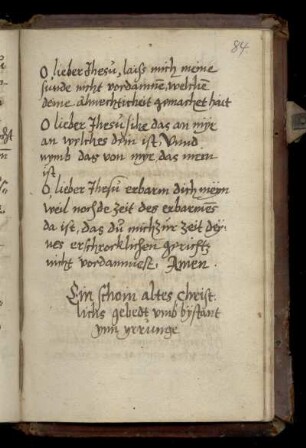 84.
O lieber Jhesu, laiß mich meine
sunde nicht vordamnē, welchē
deine almechticheit gemachet hait
O lieber Jhesu sihe das an myr
an welches dein ist. Vnnd
nymb das von myr das mein
ist
O lieber Jhesu erbarm dich meyn
weil noch de zeit des erbarmēs
da ist, das du mich zur zeit dey-
nes erschrocklichen gerichtz
nicht vordammest, Amen.
Ein schoin altes christ
lichs gebedt vmb bystant
ynn yrrunge